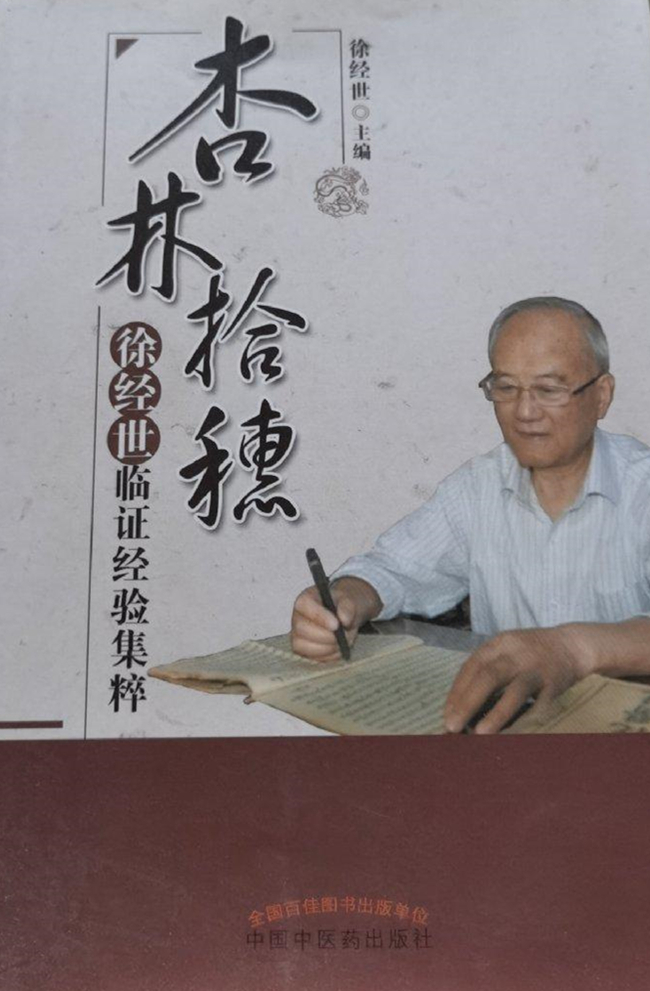 杏林拾穗
徐经世◎主编
徐经世临证经验集粹
全国百佳图书出版单位
中国中医药出版社